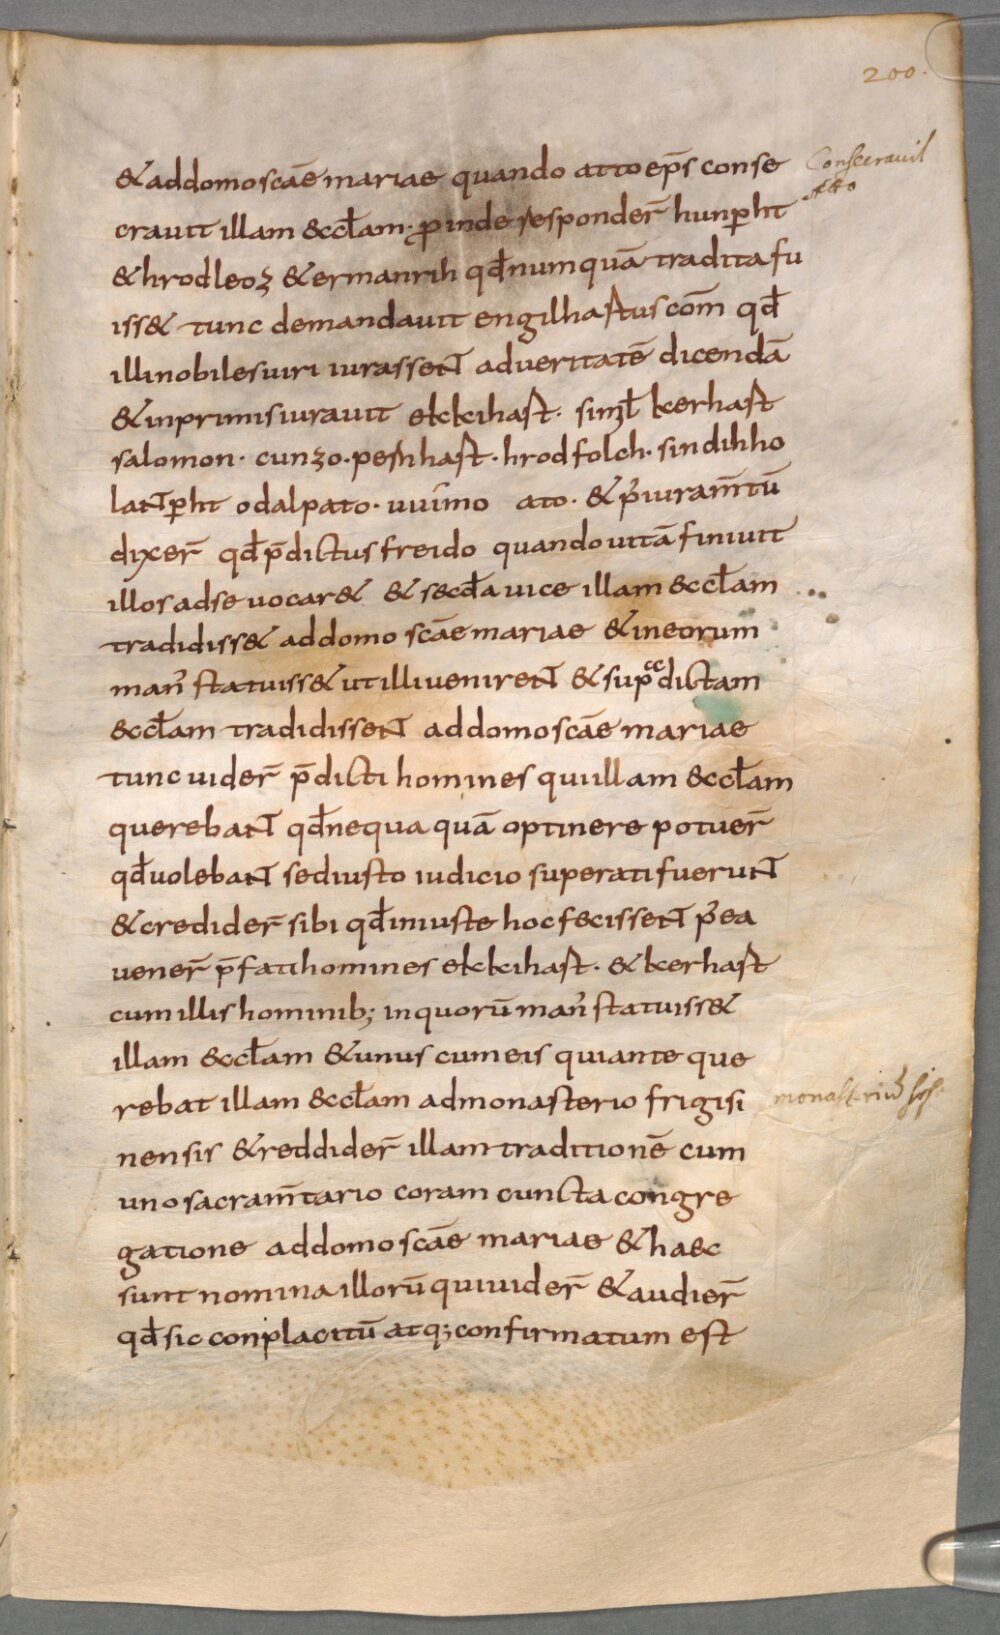 200.
& ad domo scāe mariae quando atto ep̄s conse
Consecravit
Atto
cravit illam &ccl̄am. ꝓinde responder̄ hunꝑht
& hrodleoz & ermanrih qđ numquā tradita fu
iss& tunc demandavit engilhastus com̄ qđ
illi nobiles viri iurassent ad veritatē dicendā
& inprimis iuravit ekkihast. sinzl̄ kerhast
salomon. cunzo. pernhast. hrodfolch. sindihho
lantꝑht odalpato. uuīmo ato. & p̉ iuram̄tū
dixer̄ qđ p̄dictus freido quando vitā finivit
illos ad se vocar& & secd̄a vice illam &ccl̄am
tradidiss& ad domo scāe mariae & in eorum
man̉ statuiss& ut illi venirent & supͨͨdictam
&ccl̄am tradidissent ad domo scāe mariae
tunc vider̄ p̄dicti homines qui illam &ccl̄am
querebant qđ nequaquā optinere potuer̄
qđ volebant sed iusto iudicio superati fuerunt
& credider̄ sibi qđ iniuste hoc fecissent p̉ea
vener̄ p̄fati homines ekkihast. & kerhast
cum illis hominib; in quorū man̉ statuiss&
illam &ccl̄am & unus cum eis qui ante que
rebat illam &ccl̄am ad monasterio frigisi
monasteriū
nensis & reddider̄ illam traditionē cum
uno sacram̄tario coram cuncta congre
gatione ad domo scāe mariae & haec
sunt nomina illorū qui vider̄ & audier̄
qđ sic conplacitū atq; confirmatum est